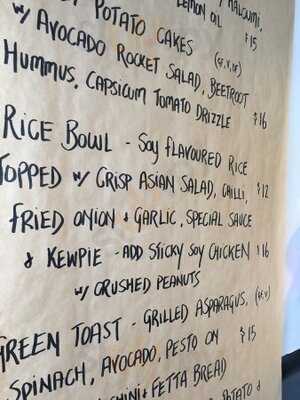 POTATO CAKES LEMON OIL $15
W/ AVOCADO ROCKET SALAD, BEETROOT (GF, V, DF)
HUMMUS, CAPSICUM TOMATO DRIZZLE $16
RICE BOWL - SOY FLAVOURED RICE
TOPPED W/ CRISP ASIAN SALAD, CHILLI, $12
FRIED ONION & GARLIC, SPECIAL SAUCE
& KEWPIE - ADD STICKY SOY CHICKEN $16
W/ CRUSHED PEANUTS
GREEN TOAST - GRILLED ASPARAGUS, (GF, V)
SPINACH, AVOCADO, PESTO ON $15
& FETTA BREAD
POTATO &